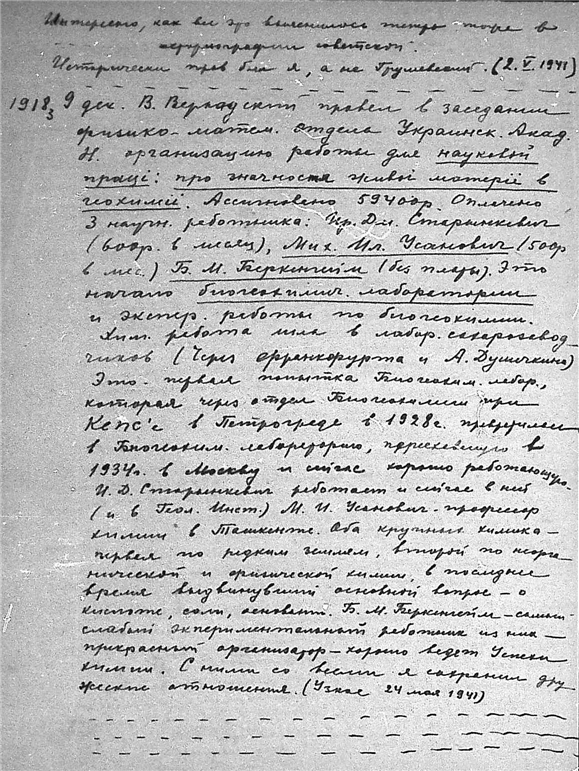 Интересно, как все это выяснилось теперь в
историографии советской.
Исторически прав был я, а не Грушевский. (2.V.1941)
1918, 9 дек. В. Вернадский провел в заседании
физико-матем. отдела Украинск. Акад.
Н. организацию работы для науковой
праці: про значность живої матерії в
геохимии. Ассигновано 59400р. Оплачено
3 научн. работника: Ир. Дм. Старынкевич
(600р. в месяц), Мих. Ил. Усанович (500р
в мес.) Б. М. Беркенгейм (без платы). Это
начало биогеохимич. лаборатории
и экспер. работы по биогеохимии.
Хим. работа шла в лабор. сахарозавод-
чиков (через Франкфурта и А. Душечкина)
Это первая попытка Биогеохим. лабор.,
которая через отдел Биогеохимии при
КЕПС'е в Петрограде в 1928г. превратилась
в Биогеохим. лабораторию, переехавшую в
1934г. в Москву и сейчас хорошо работающую.
И. Д. Старынкевич работает и сейчас в ней
(и в Геол. Инст.) М. И. Усанович - профессор
химии в Ташкенте. Оба крупных химика -
первая по редким землям, второй по неорга-
нической и физической химии, в последнее
время выдвинувший основной вопрос - о
кислоте, соли, основании. Б. М. Беркенгейм - самый
слабый экспериментальный работник из них -
прекрасный организатор - хорошо ведет Успехи
химии. С ними со всеми я сохранил дру-
жеские отношения. (Узкое 24 мая 1941)